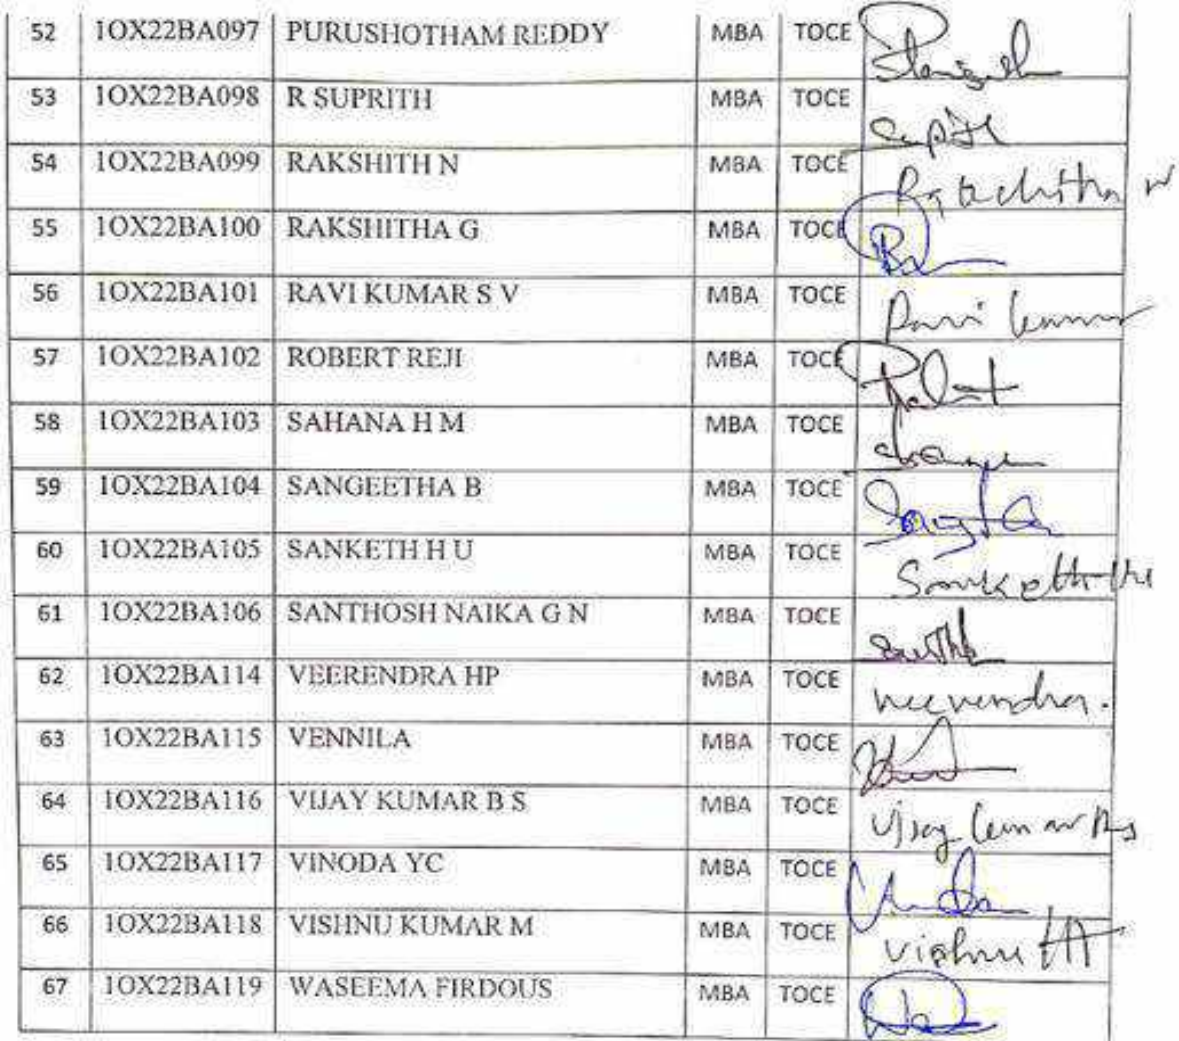 52 1OX22BA097 PURUSHOTHAM REDDY MBA TOCE
53 1OX22BA098 R SUPRITH MBA TOCE
54 1OX22BA099 RAKSHITH N MBA TOCE
55 1OX22BA100 RAKSHITHA G MBA TOCE
56 1OX22BA101 RAVI KUMAR S V MBA TOCE
57 1OX22BA102 ROBERT REJI MBA TOCE
58 1OX22BA103 SAHANA H M MBA TOCE
59 1OX22BA104 SANGEETHA B MBA TOCE
60 1OX22BA105 SANKETH H U MBA TOCE
61 1OX22BA106 SANTHOSH NAIKA G N MBA TOCE
62 1OX22BA114 VEERENDRA HP MBA TOCE veerendra.
63 1OX22BA115 VENNILA MBA TOCE
64 1OX22BA116 VIJAY KUMAR B S MBA TOCE
65 1OX22BA117 VINODA YC MBA TOCE
66 1OX22BA118 VISHNU KUMAR M MBA TOCE vishnu
67 1OX22BA119 WASEEMA FIRDOUS MBA TOCE